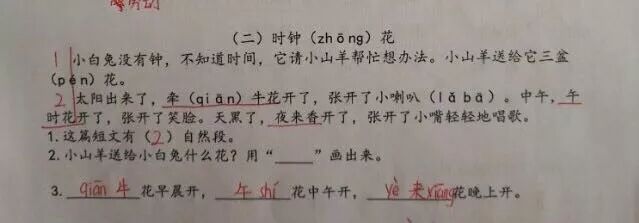 劳动
（二）时钟（zhōng）花
1 小白兔没有钟，不知道时间，它请小山羊帮忙想办法。小山羊送给它三盆
（pén）花。
2 太阳出来了，牵（qiān）牛花开了，张开了小喇叭（lǎ bā）。中午，午
时花开了，张开了笑脸。天黑了，夜来香开了，张开了小嘴轻轻地唱歌。
1. 这篇短文有（2）自然段。
2. 小山羊送给小白兔什么花？用“_____”画出来。
3. qiān 牛 花早晨开， 午 shí 花中午开， yè 来 xiāng 花晚上开。